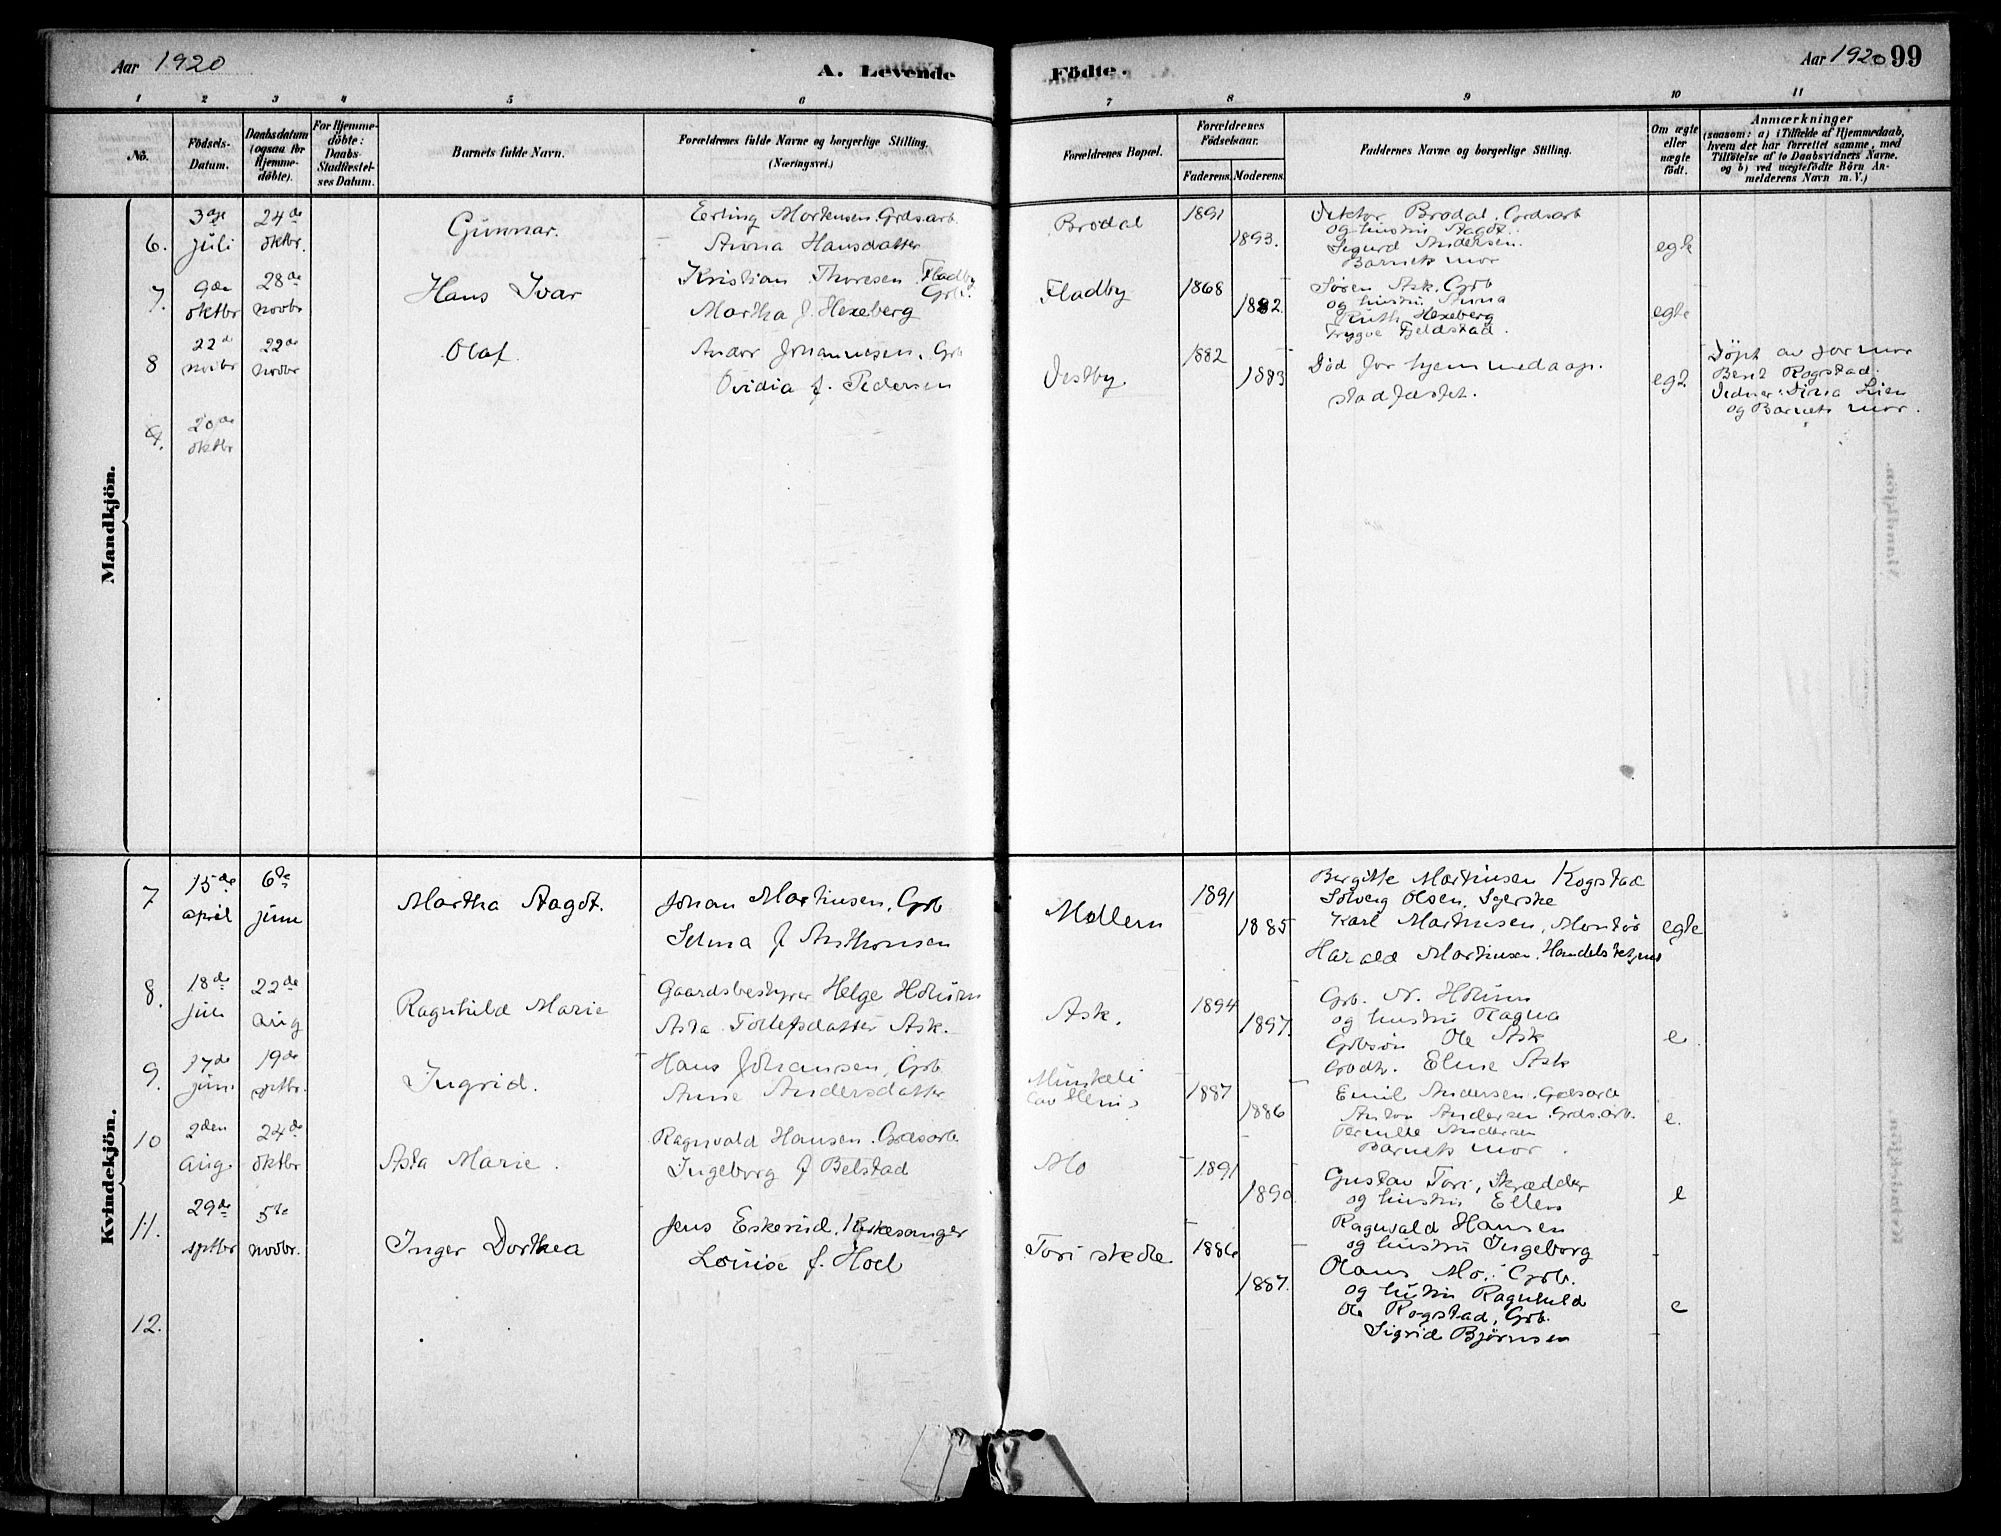 Aar 1920
A. Levende
Födte.
Aar 1920 99
1 2 3 4 5 6 7 8 9 10 11
No.
Födsels-Datum.
Daabsdatum (ogsaa for Hjemme-döbte).
For Hjemme-döbte: Daabs-Stadfæstel-ses Datum.
Barnets fulde Navn.
Forældrenes fulde Navne og borgerlige Stilling. (Næringsvei.)
Forældrenes Bopæl.
Forældrenes Födselsaar.
Faderens. Moderens.
Faddernes Navne og borgerlige Stilling.
Om ægte eller uægte födt.
Anmærkninger
(saasom: a) i Tilfælde af Hjemmedaab, hvem der har forrettet samme, med Tilföielse af to Daabsvidners Navne. og b) ved uægtefödte Börn An-melderens Navn m. V.)
Mandkjön.
6. 3die juli 24de oktbr. Gunnar.
Erling Mortensen. Grdsarb
Anna Hansdatter
Brodal 1891 1893.
Viktor Brodal. Grdsarb
og hustru Aagot.
Sigurd Andersen.
Barnets mor
egte
7. 9de oktbr 28de novbr Hans Ivar
Kristian Thoresen Fladby Grb.
Martha f. Hexeberg
Fladby 1868 1882.
Søren Ask. Grb
og hustru Anna
Ruth Hexeberg
Trygve Fjeldstad.
egte
8 22de novbr 22de novbr Olaf.
Andor Johannesen. Grb
Ovidia f. Pedersen
Vestby. 1882 1883
Død før hjemmedaap.
stadfæstet.
egte
Døpt av jormor
Berit Rogstad.
Vidner: Lien
og Barnets mor.
9. 20de oktbr
Kvindekjön.
7 15de april 6te juni Martha Aagot.
Johan Martinsen, Grb
Selma f Anthonsen
Mollern 1891 1885
Bergitte Martinsen Kogstad
Solveig Olsen, Syerske
Karl Martinsen, Montør
Harald Martinsen, Handelsbetjent
egte
8. 18de juli 22de aug Ragnhild Marie
Gaardsbestyrer Helge Holum
Asta Tollefsdatter Ask.
Ask. 1894 1897.
Grb. N. Holum
og hustru Ragna
Grbsøn Ole Ask
Grbdtr. Eline Ask
e.
9. 17de juni 19de sptbr. Ingrid.
Hans Johansen, Grb
Anne Andersdatter
1887 1886
Emil Andersen. Grdsarb
Anton Andersen. Grdsarb.
Pernille Andersen
Barnets mor.
e.
10 2den aug. 24de oktbr Asta Marie.
Ragnvald Hansen. Grdsarb.
Ingeborg f Belstad
Mo 1891 1890
Gustav Tori, Skrædder
og hustru Ellen
Ragnvald Hansen
og hustru Ingeborg
e
11. 29de sptbr 5te novbr. Inger Dorthea
Jens Eskerud, Kirkesanger
Louise f. Hoel
Tori skole 1886 1887.
Olaus Mo. Grb.
og hustru Ragnhild
Ole Rogstad, Grb.
Sigrid Bjørnsen
e
12.